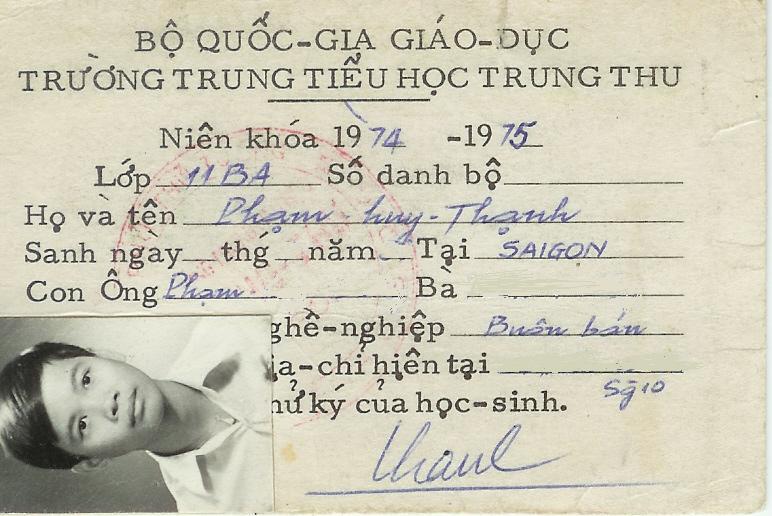 BỘ QUỐC-GIA GIÁO-DỤC
TRƯỜNG TRUNG TIỂU HỌC TRUNG THU
Niên khóa 1974 -1975
Lớp 11BA Số danh bộ
Họ và tên Phạm-huy-Thạnh
Sanh ngáy thg năm Tại SAIGON
Con Ông Phạm Bà
ghề-nghiệp Buôn bán
ịa-chỉ hiện tại
Sg10
hữ ký của học-sinh.